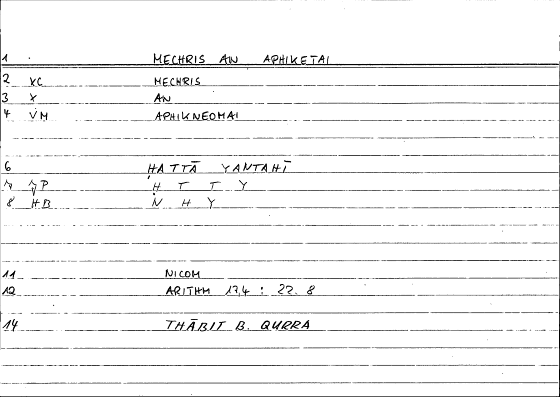 1 MECHRIS AN APHIKETAI
2 XC MECHRIS
3 X AN
4 VM APHIKNEOMAI
6 ḤATTĀ YANTAHĪ
7 P Ḥ T T Y
8 HB N H Y
11 NICOM
12 ARITHM 13,4 : 22. 8
14 THĀBIT B. QURRA